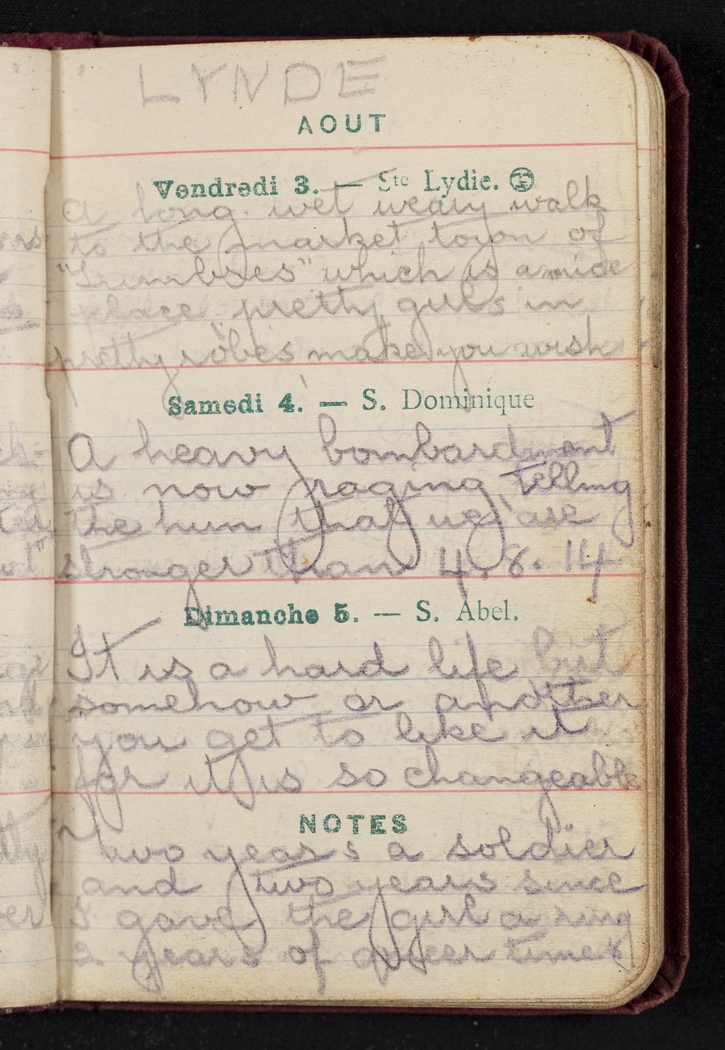 LYNDE
AOUT
Vendredi 3. — Ste Lydie.
A long wet weary walk
to the market town of
"Lumbres" which is a nice
place, pretty girls in
pretty robes make you wish
Samedi 4. — S. Dominique
A heavy bombardment
is now raging telling
the hun that we are
stronger than 4.8.14
Dimanche 5. — S. Abel.
It is a hard life but
somehow or another
you get to like it
for it is so changeable
NOTES
Two years a soldier
and two years since
I gave the girl a ring
2 years of queer times